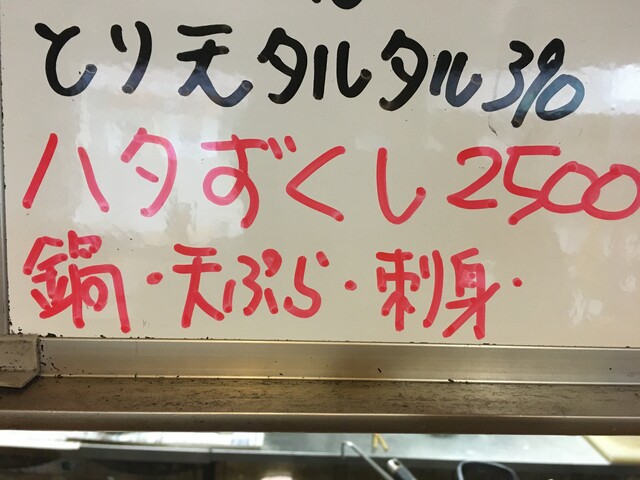 とり天タルタル390
ハタずくし2500
鍋・天ぷら・刺身・